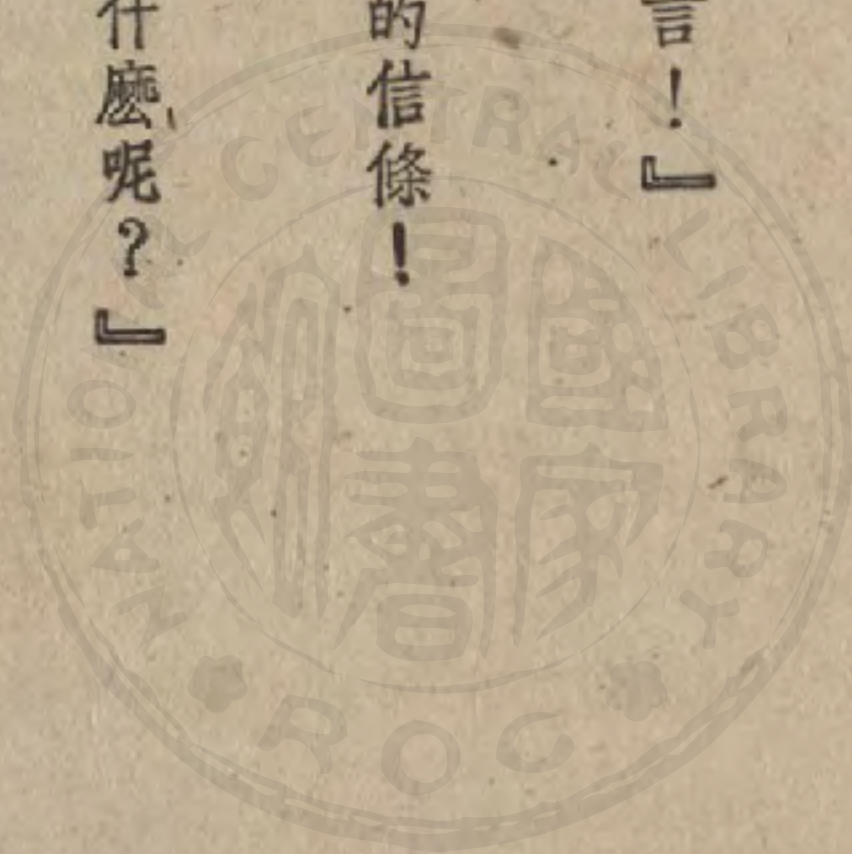 言！』
的信條！
什麼呢？』
NATIONAL CENTRAL LIBRARY
R O C
國家圖書館